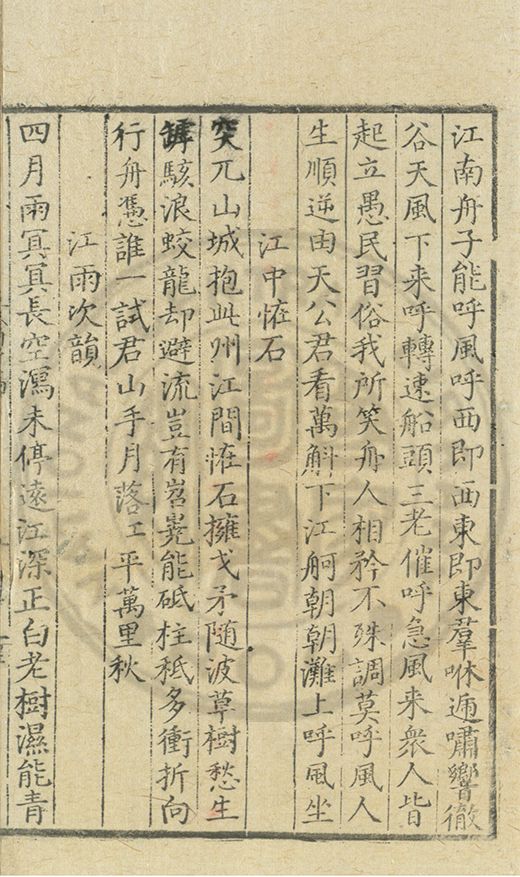 江南舟子能呼風呼西即西東即東羣咻逓嘯響徹
谷天風下来呼轉速船頭三老催呼急風来衆人皆
起立愚民習俗我所笑舟人相矜不殊調莫呼風人
生順逆由天公君看萬斛下江舸朝朝灘上呼風坐
江中恠石
突兀山城抱此州江間恠石擁戈矛随波草樹愁生
罅駭浪蛟龍却避流豈有岧嶤能砥柱秪多衝折向
行舟憑誰一試君山手月落江平萬里秋
江雨次韻
四月雨冥冥長空瀉未停遠江深正白老樹濕能青